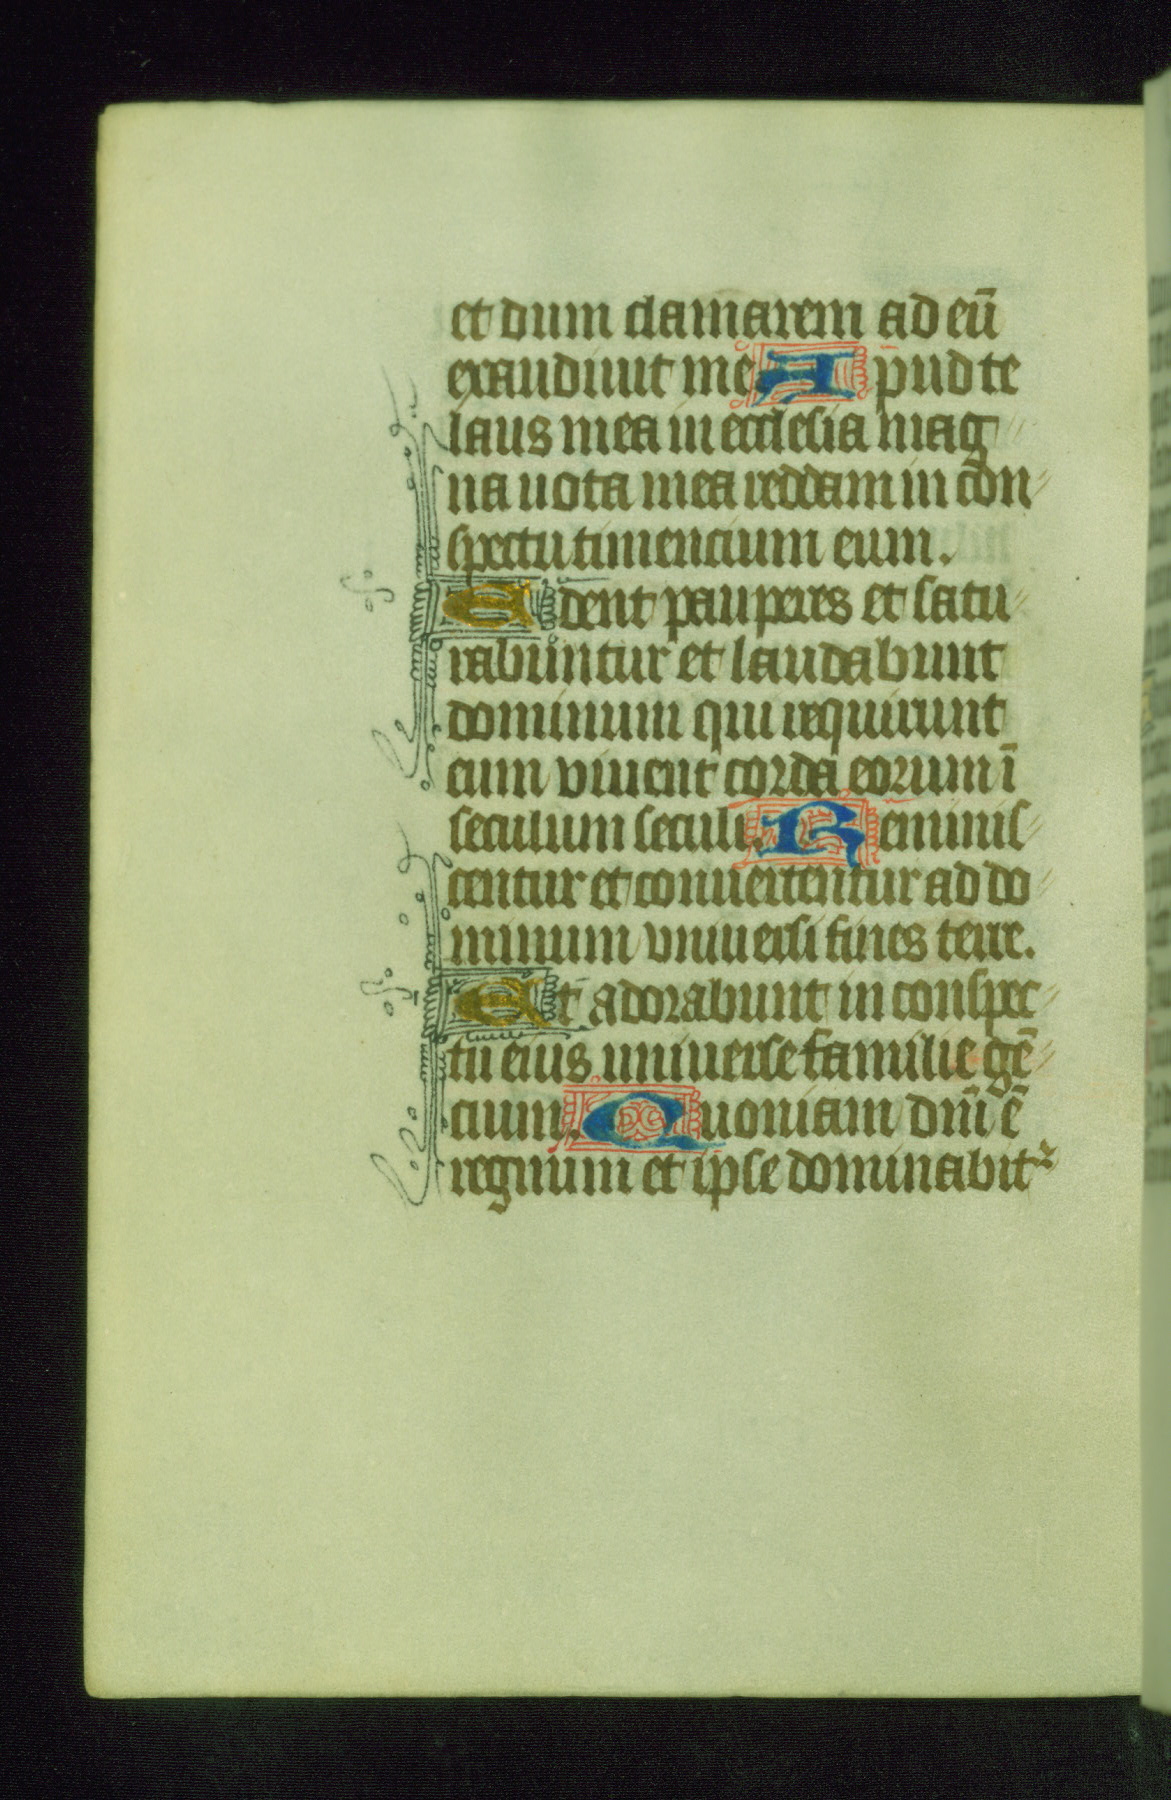 et dum clamarem ad eū
exaudiuit me. Apud te
laus mea in ecclesia mag
na uota mea reddam in con
spectu timencium eum.
Edent pauperes et satu
rabuntur et laudabunt
dominum qui requirunt
eum viuent corda eorum ī
seculum seculi. Reminis
centur et conuertentur ad do
minum vniuersi fines terre.
Et adorabunt in conspec
tu eius uniuerse familie gē
cium. Quoniam dnī ē
regnum et ipse dominabit᷑